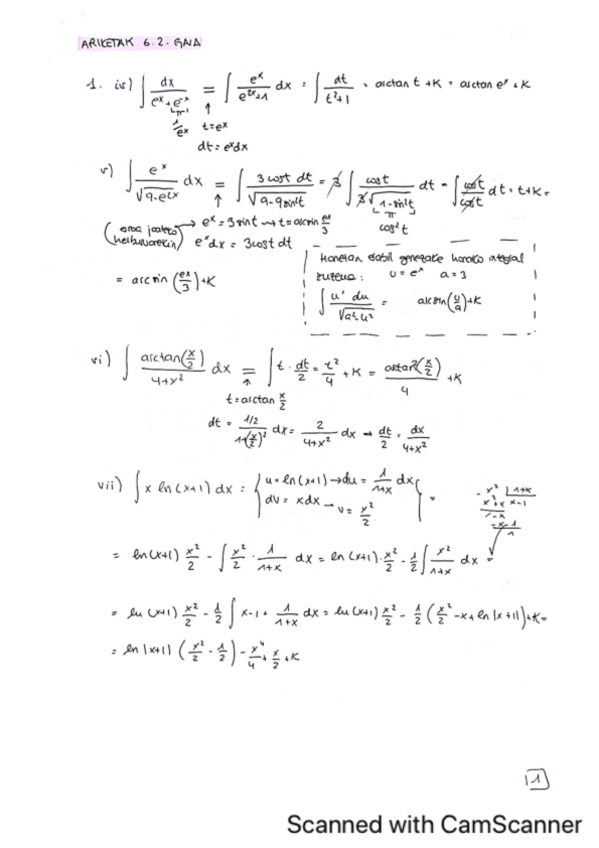 ARIKETAK 6.2. GAIA
1. iv) ∫ dx/(eˣ+e⁻ˣ) = ∫ eˣ/(e²ˣ+1) dx = ∫ dt/(t²+1) = arctan t + K = arctan eˣ + K
1/eˣ t=eˣ
dt=eˣdx
v) ∫ eˣ/√(9-e²ˣ) dx = ∫ 3cost dt/√(9-9sin²t) = 3 ∫ cost/(3√(1-sin²t)) dt = ∫ cost/cost dt = t+K =
eˣ=3sint → t=arcsin eˣ/3 cos²t
eˣdx = 3cost dt
= arcsin (eˣ/3)+K
Honetan erabil genezake horrako integral
zuzena: u=eˣ a=3
∫ u' du/√(a²-u²) = arcsin(u/a)+K
vi) ∫ arctan(x/2)/(4+x²) dx = ∫ t · dt/2 = t²/4 + K = arctan²(x/2)/4 + K
t=arctan x/2
dt = (1/2)/(1+(x/2)²) dx = 2/(4+x²) dx → dt/2 = dx/(4+x²)
vii) ∫ x ln(x+1) dx = { u=ln(x+1) → du = 1/(1+x) dx
dv=xdx → v= x²/2 } =
x² | 1+x
x²+x x-1
-x
-x-1
1
= ln(x+1) x²/2 - ∫ x²/2 · 1/(1+x) dx = ln(x+1) · x²/2 - 1/2 ∫ x²/(1+x) dx =
= ln(x+1) x²/2 - 1/2 ∫ x-1+ 1/(1+x) dx = ln(x+1) x²/2 - 1/2 (x²/2 -x+ln|x+1|)+K=
= ln|x+1| (x²/2 - 1/2) - x⁴/4 + x/2 + K
1
Scanned with CamScanner